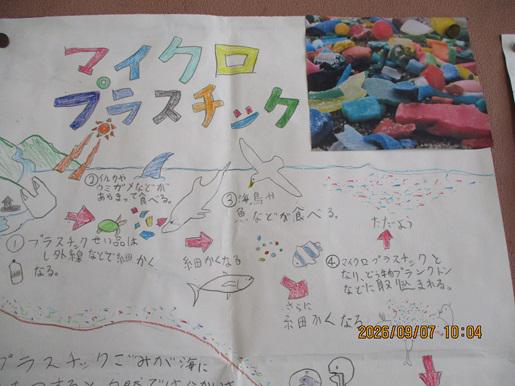 マイクロ
プラスチック
②イルカや
ウミガメなどが
あやまって食べる。
③海鳥や
魚などが食べる。
①プラスチックせい品は
し外線などで細かく
なる。
細かくなる
ただよう
④マイクロプラスチックと
なり、どう物プランクトン
などに取り込まれる。
さらに
細かくなる
2026/09/07 10:04
プラスチックごみが海に